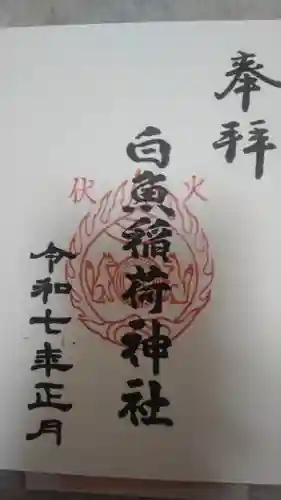 奉拝
白魚稲荷神社
火伏
令和七年正月